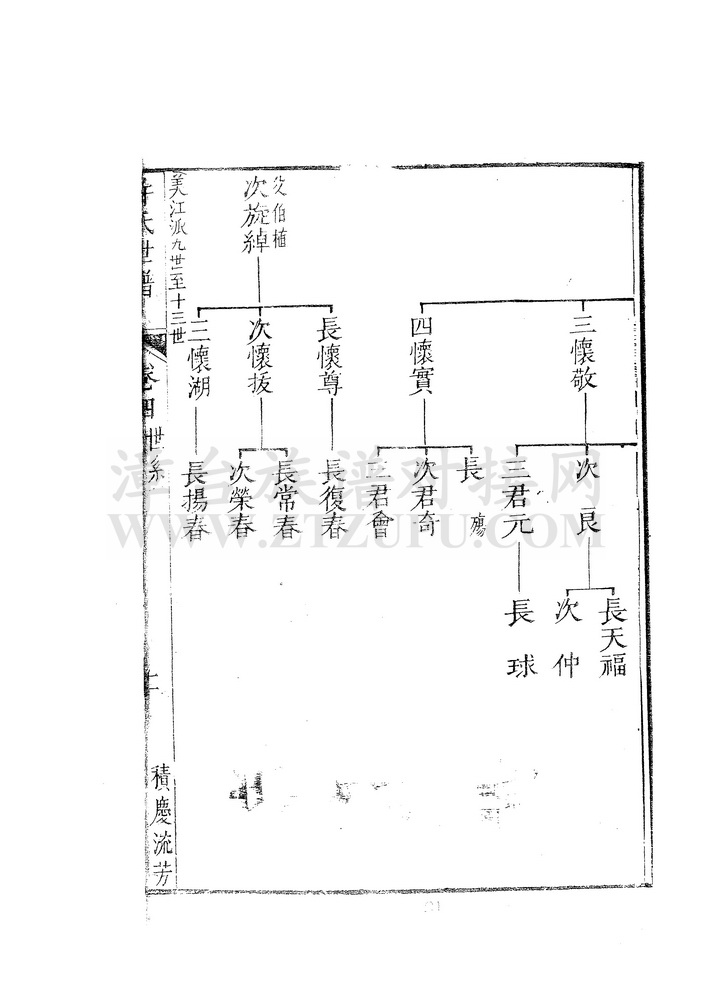 三懷敬
次良
長天福
次仲
三君元
長球
四懷實
長殤
次君奇
三君會
父伯植
次旋綽
長懷尊
長復春
次懷拔
長常春
次榮春
三懷湖
長揚春
美江派九世至十三世
氏世譜
卷四 世系
積慶流芳
漳台族谱对接网
WWW.ZTZUFU.COM